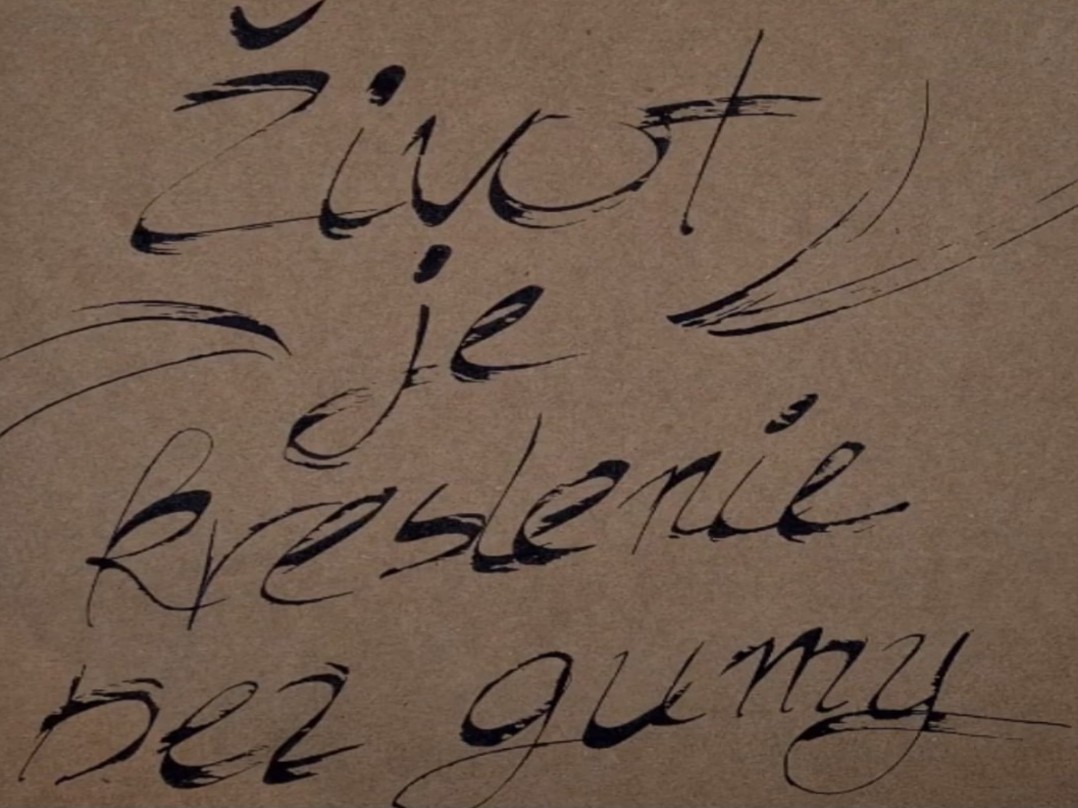 Život
je
kreslenie
bez gumy